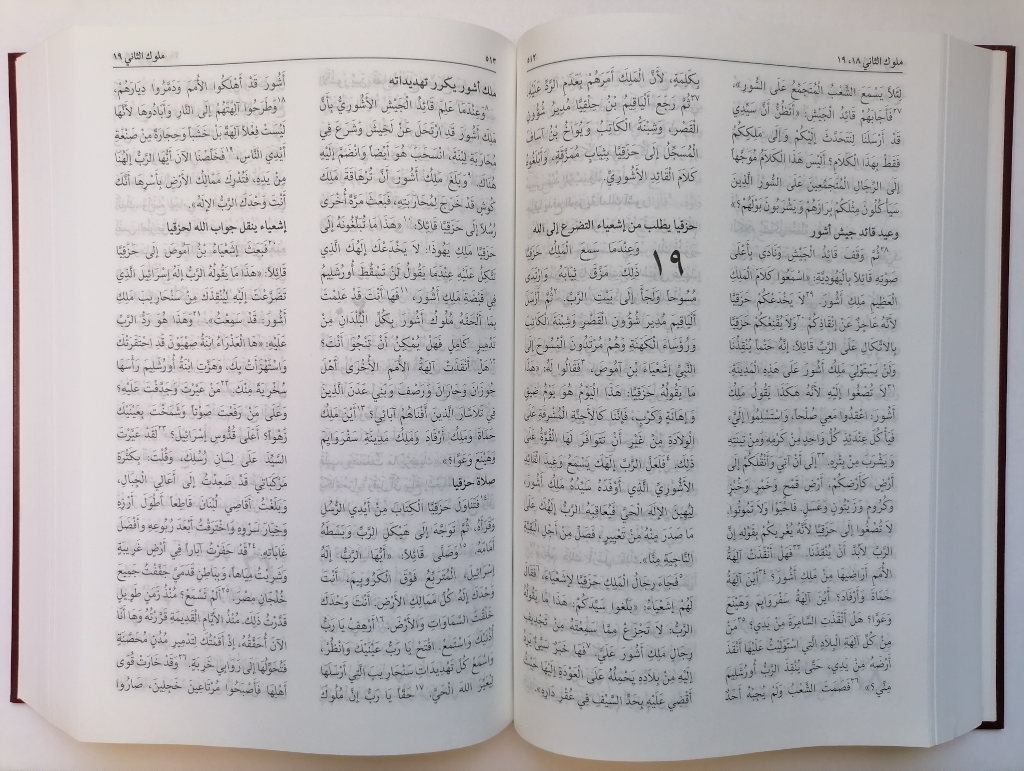 ملوك الثاني ١٨، ١٩
٥١٢
لِئَلَّا يَسْمَعَ الشَّعْبُ الْمُتَجَمِّعُ عَلَى السُّورِ».
٢٧فَأَجَابَهُمْ قَائِدُ الْجَيْشِ: «أَتَظُنُّ أَنَّ سَيِّدِي
قَدْ أَرْسَلَنَا لِنَتَحَدَّثَ إِلَيْكُمْ وَإِلَى مَلِكِكُمْ
فَقَطْ بِهَذَا الْكَلامِ؟ أَلَيْسَ هَذَا الْكَلامُ مُوَجَّهاً
إِلَى الرِّجَالِ الْمُتَجَمِّعِينَ عَلَى السُّورِ الَّذِينَ
سَيَأْكُلُونَ مِثْلَكُمْ بِرَازَهُمْ وَيَشْرَبُونَ بَوْلَهُمْ؟»
وعيد قائد جيش أشور
٢٨ثُمَّ وَقَفَ قَائِدُ الْجَيْشِ وَنَادَى بِأَعْلَى
صَوْتِهِ قَائِلاً بِالْيَهُودِيَّةِ: «اسْمَعُوا كَلامَ الْمَلِكِ
الْعَظِيمِ مَلِكِ أَشُّورَ. ٢٩لَا يَخْدَعْكُمْ حَزَقِيَّا
لأَنَّهُ عَاجِزٌ عَنْ إِنْقَاذِكُمْ. ٣٠وَلا يُقْنِعْكُمْ حَزَقِيَّا
بِالاتِّكَالِ عَلَى الرَّبِّ قَائِلاً: إِنَّهُ حَتْماً يُنْقِذُنَا
وَلَنْ يَسْتَوْلِيَ مَلِكُ أَشُّورَ عَلَى هَذِهِ الْمَدِينَةِ.
٣١لَا تُصْغُوا إِلَيْهِ لأَنَّهُ هَكَذَا يَقُولُ مَلِكُ
أَشُّورَ: اعْقِدُوا مَعِي صُلْحاً، وَاسْتَسْلِمُوا إِلَيَّ،
فَيَأْكُلَ عِنْدَئِذٍ كُلُّ وَاحِدٍ مِنْ كَرْمِهِ وَمِنْ تِينَتِهِ
وَيَشْرَبَ مِنْ بِئْرِهِ. ٣٢إِلَى أَنْ آتِيَ وَأَنْقُلَكُمْ إِلَى
أَرْضٍ كَأَرْضِكُمْ، أَرْضِ قَمْحٍ وَخَمْرٍ وَخُبْزٍ
وَكُرُومٍ وَزَيْتُونٍ وَعَسَلٍ. فَاحْيَوْا وَلا تَمُوتُوا.
لَا تُصْغُوا إِلَى حَزَقِيَّا لأَنَّهُ يُغْرِيكُمْ بِقَوْلِهِ إِنَّ
الرَّبَّ لابُدَّ أَنْ يُنْقِذَنَا. ٣٣فَهَلْ أَنْقَذَتْ آلِهَةُ
الأُمَمِ أَرَاضِيَهَا مِنْ مَلِكِ أَشُّورَ؟ ٣٤أَيْنَ آلِهَةُ
حَمَاةَ وَأَرْفَادَ؟ أَيْنَ آلِهَةُ سَفَرْوَايِمَ وَهَيْنَعَ
وَعِوَّا؟ هَلْ أَنْقَذَتِ السَّامِرَةَ مِنْ يَدِي؟ ٣٥مَنْ
مِنْ كُلِّ آلِهَةِ الْبِلادِ الَّتِي اسْتَوْلَيْتُ عَلَيْهَا أَنْقَذَ
أَرْضَهُ مِنْ يَدِي، حَتَّى يُنْقِذَ الرَّبُّ أُورُشَلِيمَ
مِنِّي؟» ٣٦فَصَمَتَ الشَّعْبُ وَلَمْ يُجِبْهُ أَحَدٌ
بِكَلِمَةٍ، لأَنَّ الْمَلِكَ أَمَرَهُمْ بِعَدَمِ الرَّدِّ عَلَيْهِ.
٣٧ثُمَّ رَجَعَ أَلِيَاقِيمُ بْنُ حِلْقِيَّا مُدِيرُ شُؤُونِ
الْقَصْرِ، وَشِبْنَةُ الْكَاتِبُ وَيُوَاخُ بْنُ آسَافَ
الْمُسَجِّلُ إِلَى حَزَقِيَّا بِثِيَابٍ مُمَزَّقَةٍ، وَأَبْلَغُوهُ
كَلامَ الْقَائِدِ الأَشُورِيِّ.
حزقيا يطلب من إشعياء التضرع إلى الله
١٩ وَعِنْدَمَا سَمِعَ الْمَلِكُ حَزَقِيَّا
ذَلِكَ مَزَّقَ ثِيَابَهُ وَارْتَدَى
مُسُوحاً وَلَجَأَ إِلَى بَيْتِ الرَّبِّ. ٢ثُمَّ أَرْسَلَ
أَلِيَاقِيمَ مُدِيرَ شُؤُونِ الْقَصْرِ وَشِبْنَةَ الْكَاتِبَ
وَرُؤَسَاءَ الْكَهَنَةِ وَهُمْ مُرْتَدُونَ الْمُسُوحَ إِلَى
النَّبِيِّ إِشَعْيَاءَ بْنِ آمُوصَ، ٣فَقَالُوا لَهُ: «هَذَا
مَا يَقُولُهُ حَزَقِيَّا: هَذَا الْيَوْمُ هُوَ يَوْمُ ضِيقٍ
وَإِهَانَةٍ وَكَرْبٍ، فَإِنَّنَا كَالأَجِنَّةِ الْمُشْرِفَةِ عَلَى
الْوِلادَةِ مِنْ غَيْرِ أَنْ تَتَوَافَرَ لَهَا الْقُوَّةُ عَلَى
ذَلِكَ. ٤فَلَعَلَّ الرَّبَّ إِلَهَكَ يَسْمَعُ وَعِيدَ الْقَائِدِ
الأَشُّورِيِّ الَّذِي أَوْفَدَهُ سَيِّدُهُ مَلِكُ أَشُّورَ،
لِيُهِينَ الإِلَهَ الْحَيَّ فَيُعَاقِبَهُ الرَّبُّ إِلَهُكَ عَلَى
مَا صَدَرَ مِنْهُ مِنْ تَعْيِيرٍ، فَصَلِّ مِنْ أَجْلِ الْبَقِيَّةِ
النَّاجِيَةِ مِنَّا».
٥فَجَاءَ رِجَالُ الْمَلِكِ حَزَقِيَّا لإِشَعْيَاءَ، ٦فَقَالَ
لَهُمْ إِشَعْيَاءُ: «بَلِّغُوا سَيِّدَكُمْ: هَذَا مَا يَقُولُهُ
الرَّبُّ: لَا تَجْزَعْ مِمَّا سَمِعْتَهُ مِنْ تَجْدِيفِ
رِجَالِ مَلِكِ أَشُّورَ عَلَيَّ. ٧فَهَا خَبَرٌ سَيِّئٌ
إِلَيْهِ مِنْ بِلادِهِ يَحْمِلُهُ عَلَى الْعَوْدَةِ إِلَيْهَا حَيْثُ
أَقْضِي عَلَيْهِ بِحَدِّ السَّيْفِ فِي عُقْرِ دَارِهِ».
٥١٣
ملوك الثاني ١٩
ملك أشور يكرر تهديداته
٨وَعِنْدَمَا عَلِمَ قَائِدُ الْجَيْشِ الأَشُّورِيُّ بِأَنَّ
مَلِكَ أَشُّورَ قَدِ ارْتَحَلَ عَنْ لَخِيشَ وَشَرَعَ فِي
مُحَارَبَةِ لِبْنَةَ، انْسَحَبَ هُوَ أَيْضاً وَانْضَمَّ إِلَيْهِ
هُنَاكَ. ٩وَبَلَغَ مَلِكَ أَشُّورَ أَنَّ تُرْهَاقَةَ مَلِكَ
كُوشٍ قَدْ خَرَجَ لِمُحَارَبَتِهِ، فَبَعَثَ مَرَّةً أُخْرَى
رُسُلاً إِلَى حَزَقِيَّا قَائِلاً: ١٠«هَذَا مَا تُبَلِّغُونَهُ إِلَى
حَزَقِيَّا مَلِكِ يَهُوذَا: لَا يَخْدَعْكَ إِلَهُكَ الَّذِي
تَتَّكِلُ عَلَيْهِ عِنْدَمَا يَقُولُ لَنْ تَسْقُطَ أُورُشَلِيمُ
فِي قَبْضَةِ مَلِكِ أَشُّورَ، ١١فَهَا أَنْتَ قَدْ عَلِمْتَ
بِمَا أَلْحَقَهُ مُلُوكُ أَشُّورَ بِكُلِّ الْبُلْدَانِ مِنْ
تَدْمِيرٍ كَامِلٍ فَهَلْ يُمْكِنُ أَنْ تَنْجُوَ أَنْتَ؟
١٢هَلْ أَنْقَذَتْ آلِهَةُ الأُمَمِ الأُخْرَى أَهْلَ
جُوزَانَ وَحَارَانَ وَرَصَفَ وَبَنِي عَدَنَ الَّذِينَ
فِي تَلاسَارَ الَّذِينَ أَفْنَاهُمْ آبَائِي؟ ١٣أَيْنَ مَلِكُ
حَمَاةَ وَمَلِكُ أَرْفَادَ وَمَلِكُ مَدِينَةِ سَفَرْوَايِمَ
وَهَيْنَعَ وَعَوَّا؟»
صلاة حزقيا
١٤فَتَنَاوَلَ حَزَقِيَّا الْكِتَابَ مِنْ أَيْدِي الرُّسُلِ
وَقَرَأَهُ. ثُمَّ تَوَجَّهَ إِلَى هَيْكَلِ الرَّبِّ وَبَسَطَهُ
أَمَامَهُ. ١٥وَصَلَّى قَائِلاً: «أَيُّهَا الرَّبُّ، إِلَهَ
إِسْرَائِيلَ، الْمُتَرَبِّعُ فَوْقَ الْكَرُوبِيمَ، أَنْتَ
وَحْدَكَ إِلَهُ كُلِّ مَمَالِكِ الأَرْضِ. أَنْتَ وَحْدَكَ
خَلَقْتَ السَّمَاوَاتِ وَالأَرْضَ. ١٦أَرْهِفْ يَا رَبُّ
أُذُنَيْكَ وَاسْتَمِعْ. افْتَحْ يَا رَبُّ عَيْنَيْكَ وَانْظُرْ،
وَاسْمَعْ كُلَّ تَهْدِيدَاتِ سِنْحَارِيبَ الَّتِي أَرْسَلَهَا
لِيُعَيِّرَ اللهَ الْحَيَّ. ١٧حَقّاً يَا رَبُّ إِنَّ مُلُوكَ
أَشُّورَ قَدْ أَهْلَكُوا الأُمَمَ وَدَمَّرُوا دِيَارَهُمْ،
١٨وَطَرَحُوا آلِهَتَهُمْ إِلَى النَّارِ وَأَبَادُوهَا لأَنَّهَا
لَيْسَتْ فِعْلاً آلِهَةً بَلْ خَشَباً وَحِجَارَةً مِنْ صَنْعَةِ
أَيْدِي النَّاسِ. ١٩فَخَلِّصْنَا الآنَ أَيُّهَا الرَّبُّ إِلَهُنَا
مِنْ يَدِهِ، فَتُدْرِكَ مَمَالِكُ الأَرْضِ بِأَسْرِهَا أَنَّكَ
أَنْتَ وَحْدَكَ الرَّبُّ الإِلَهُ».
إشعياء ينقل جواب الله لحزقيا
٢٠فَبَعَثَ إِشَعْيَاءُ بْنُ آمُوصَ إِلَى حَزَقِيَّا
قَائِلاً: «هَذَا مَا يَقُولُهُ الرَّبُّ إِلَهُ إِسْرَائِيلَ الَّذِي
تَضَرَّعْتَ إِلَيْهِ لِيُنْقِذَكَ مِنْ سِنْحَارِيبَ مَلِكِ
أَشُّورَ: قَدْ سَمِعْتُ». ٢١وَهَذَا هُوَ رَدُّ الرَّبِّ
عَلَيْهِ: «هَا الْعَذْرَاءُ ابْنَةُ صِهْيَوْنَ قَدِ احْتَقَرَتْكَ
وَاسْتَهْزَأَتْ بِكَ، وَهَزَّتِ ابْنَةُ أُورُشَلِيمَ رَأْسَهَا
سُخْرِيَةً مِنْكَ. ٢٢مَنْ عَيَّرْتَ وَجَدَّفْتَ عَلَيْهِ؟
وَعَلَى مَنْ رَفَعْتَ صَوْتاً وَشَمَخْتَ بِعَيْنَيْكَ
زَهْواً؟ أَعَلَى قُدُّوسِ إِسْرَائِيلَ؟ ٢٣لَقَدْ عَيَّرْتَ
السَّيِّدَ عَلَى لِسَانِ رُسُلِكَ، وَقُلْتَ: بِكَثْرَةِ
مَرْكَبَاتِي قَدْ صَعِدْتُ إِلَى أَعَالِي الْجِبَالِ،
وَبَلَغْتُ أَقَاصِيَ لُبْنَانَ قَاطِعاً أَطْوَلَ أَرْزِهِ
وَخِيَارَ سَرْوِهِ وَاخْتَرَقْتُ أَبْعَدَ رُبُوعِهِ وَأَفْضَلَ
غَابَاتِهِ. ٢٤قَدْ حَفَرْتُ آبَاراً فِي أَرْضٍ غَرِيبَةٍ
وَشَرِبْتُ مِيَاهاً، وَبِبَاطِنِ قَدَمَيَّ جَفَّفْتُ جَمِيعَ
خُلْجَانِ مِصْرَ. ٢٥أَلَمْ تَسْمَعْ؟ مُنْذُ زَمَنٍ طَوِيلٍ
قَدَّرْتُ ذَلِكَ. مُنْذُ الأَيَّامِ الْقَدِيمَةِ قَرَّرْتُهُ وَهَا أَنَا
الآنَ أُحَقِّقُهُ، إِذْ أَقَمْتُكَ لِتَدْمِيرِ مُدُنٍ مُحَصَّنَةٍ
فَتُحَوِّلُهَا إِلَى رَوَابِي خَرِبَةٍ. ٢٦وَقَدْ خَارَتْ قُوَى
أَهْلِهَا فَأَصْبَحُوا مُرْتَاعِينَ خَجِلِينَ، صَارُوا